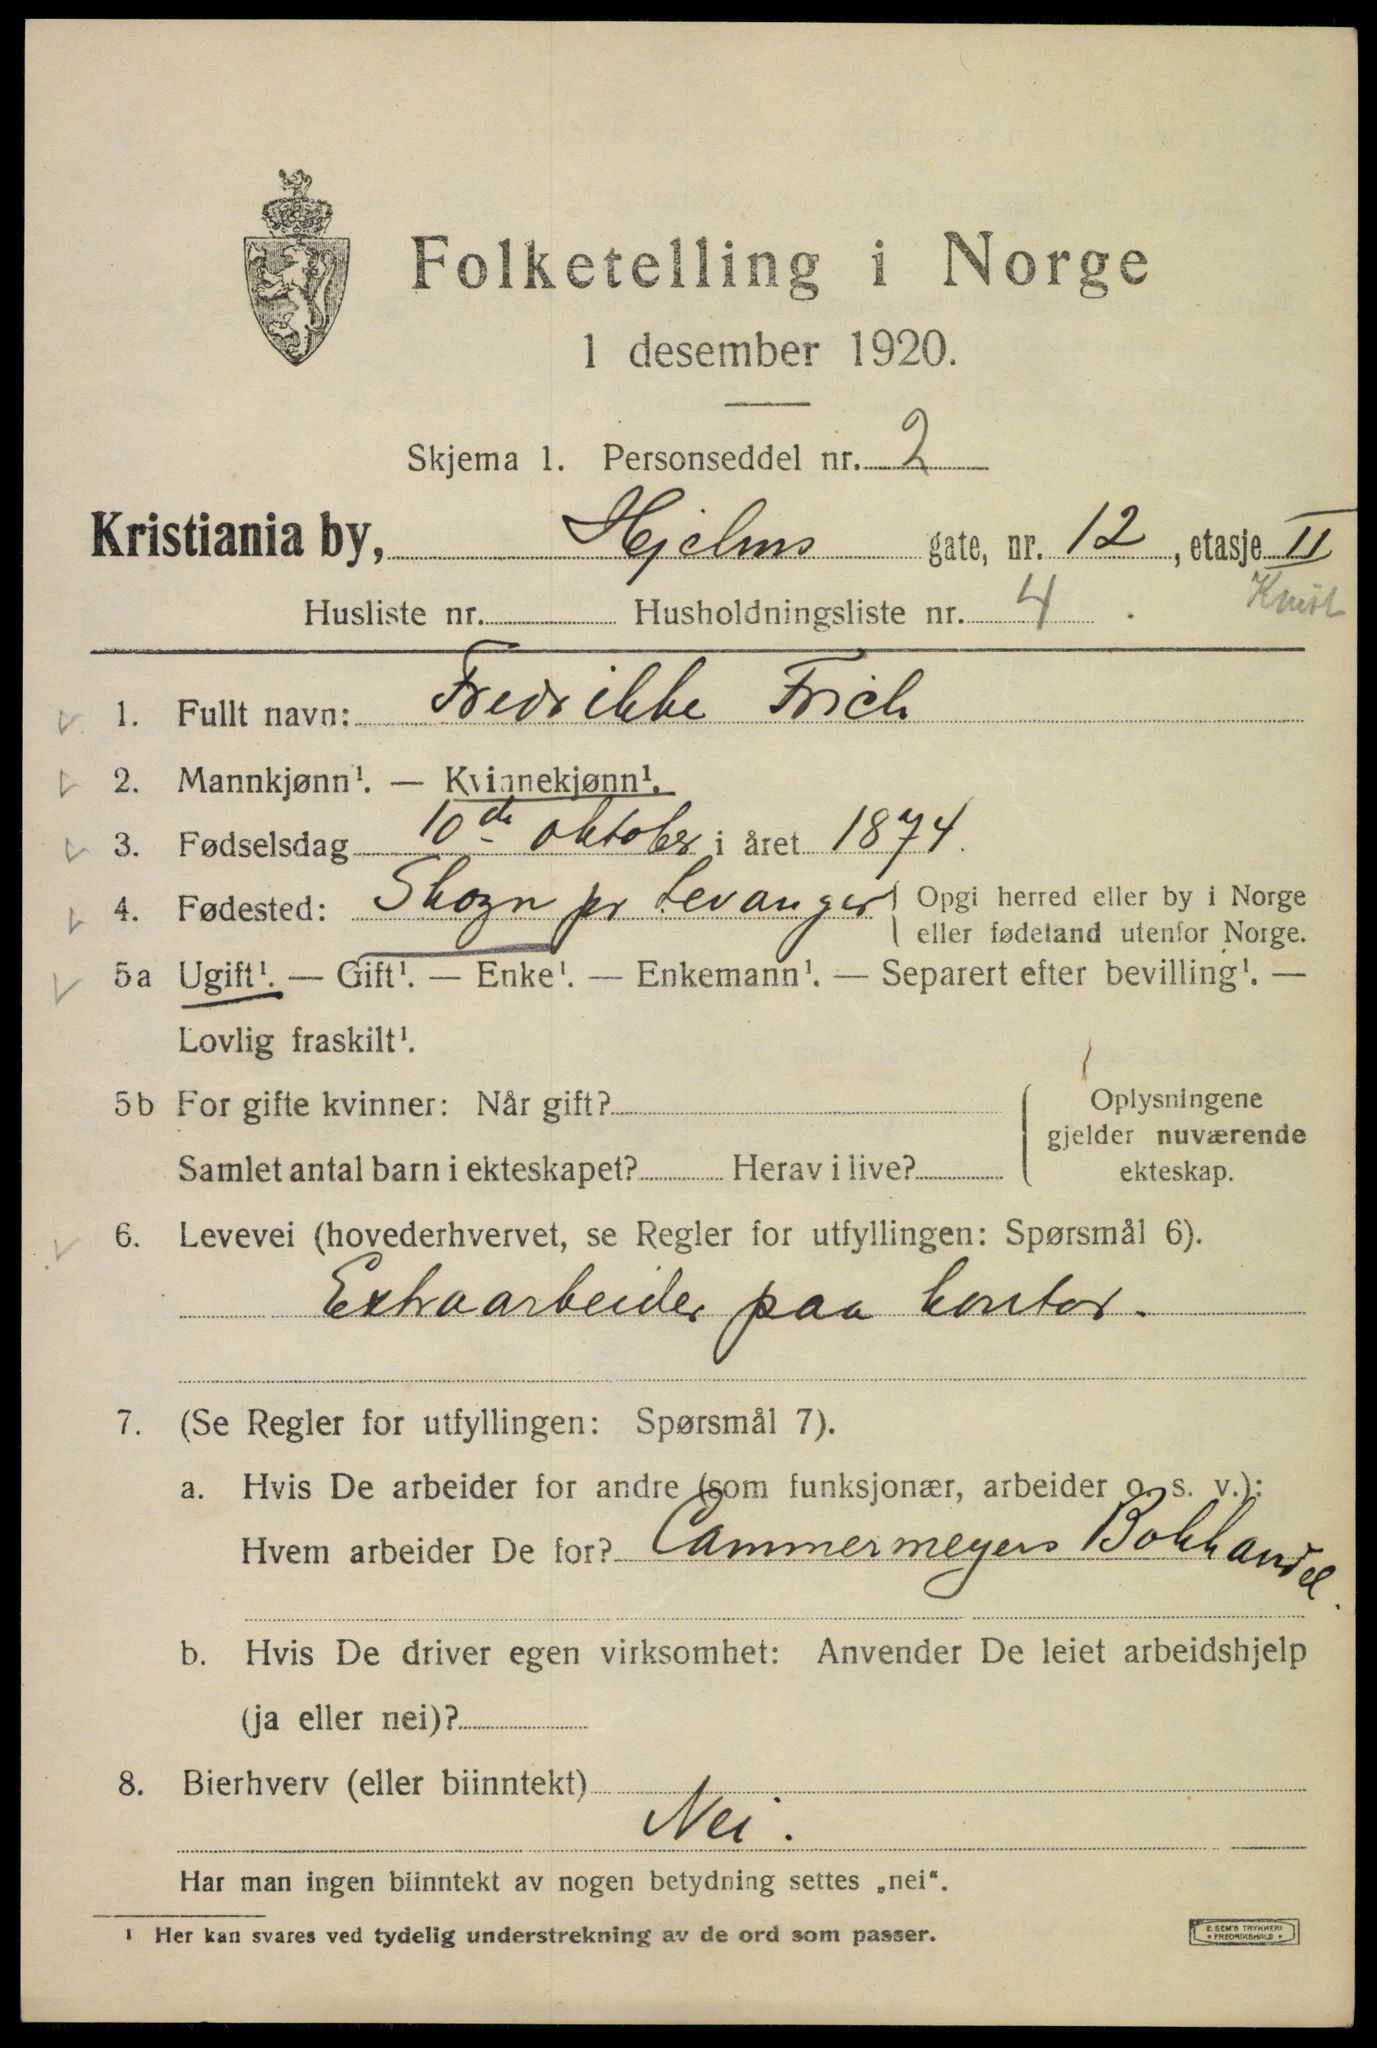 Folketelling i Norge
1 desember 1920.
Skjema 1. Personseddel nr. 2
Kristiania by, Hjelms gate, nr. 12, etasje II
Husliste nr. Husholdningsliste nr. 4
1. Fullt navn: Fredrikke Frich
2. Mannkjønn¹. — Kvinnekjønn¹.
3. Fødselsdag 10de oktober i året 1874.
4. Fødested: Skogn pr Levanger Opgi herred eller by i Norge
eller fødeland utenfor Norge.
5a Ugift¹. — Gift¹. — Enke¹. — Enkemann¹. — Separert efter bevilling¹. —
Lovlig fraskilt¹.
5b For gifte kvinner: Når gift?
Samlet antal barn i ekteskapet? Herav i live?
Oplysningene
gjelder nuværende
ekteskap.
6. Levevei (hovederhvervet, se Regler for utfyllingen: Spørsmål 6).
Extraarbeider paa kontor.
7. (Se Regler for utfyllingen: Spørsmål 7).
a. Hvis De arbeider for andre (som funksjonær, arbeider o. s. v.):
Hvem arbeider De for? Cammermeyers Bokhandel.
b. Hvis De driver egen virksomhet: Anvender De leiet arbeidshjelp
(ja eller nei)?
8. Bierhverv (eller biinntekt)
Nei.
Har man ingen biinntekt av nogen betydning settes „nei“.
¹ Her kan svares ved tydelig understrekning av de ord som passer.
E. SEM'S TRYKKERI
FREDRIKSHALD